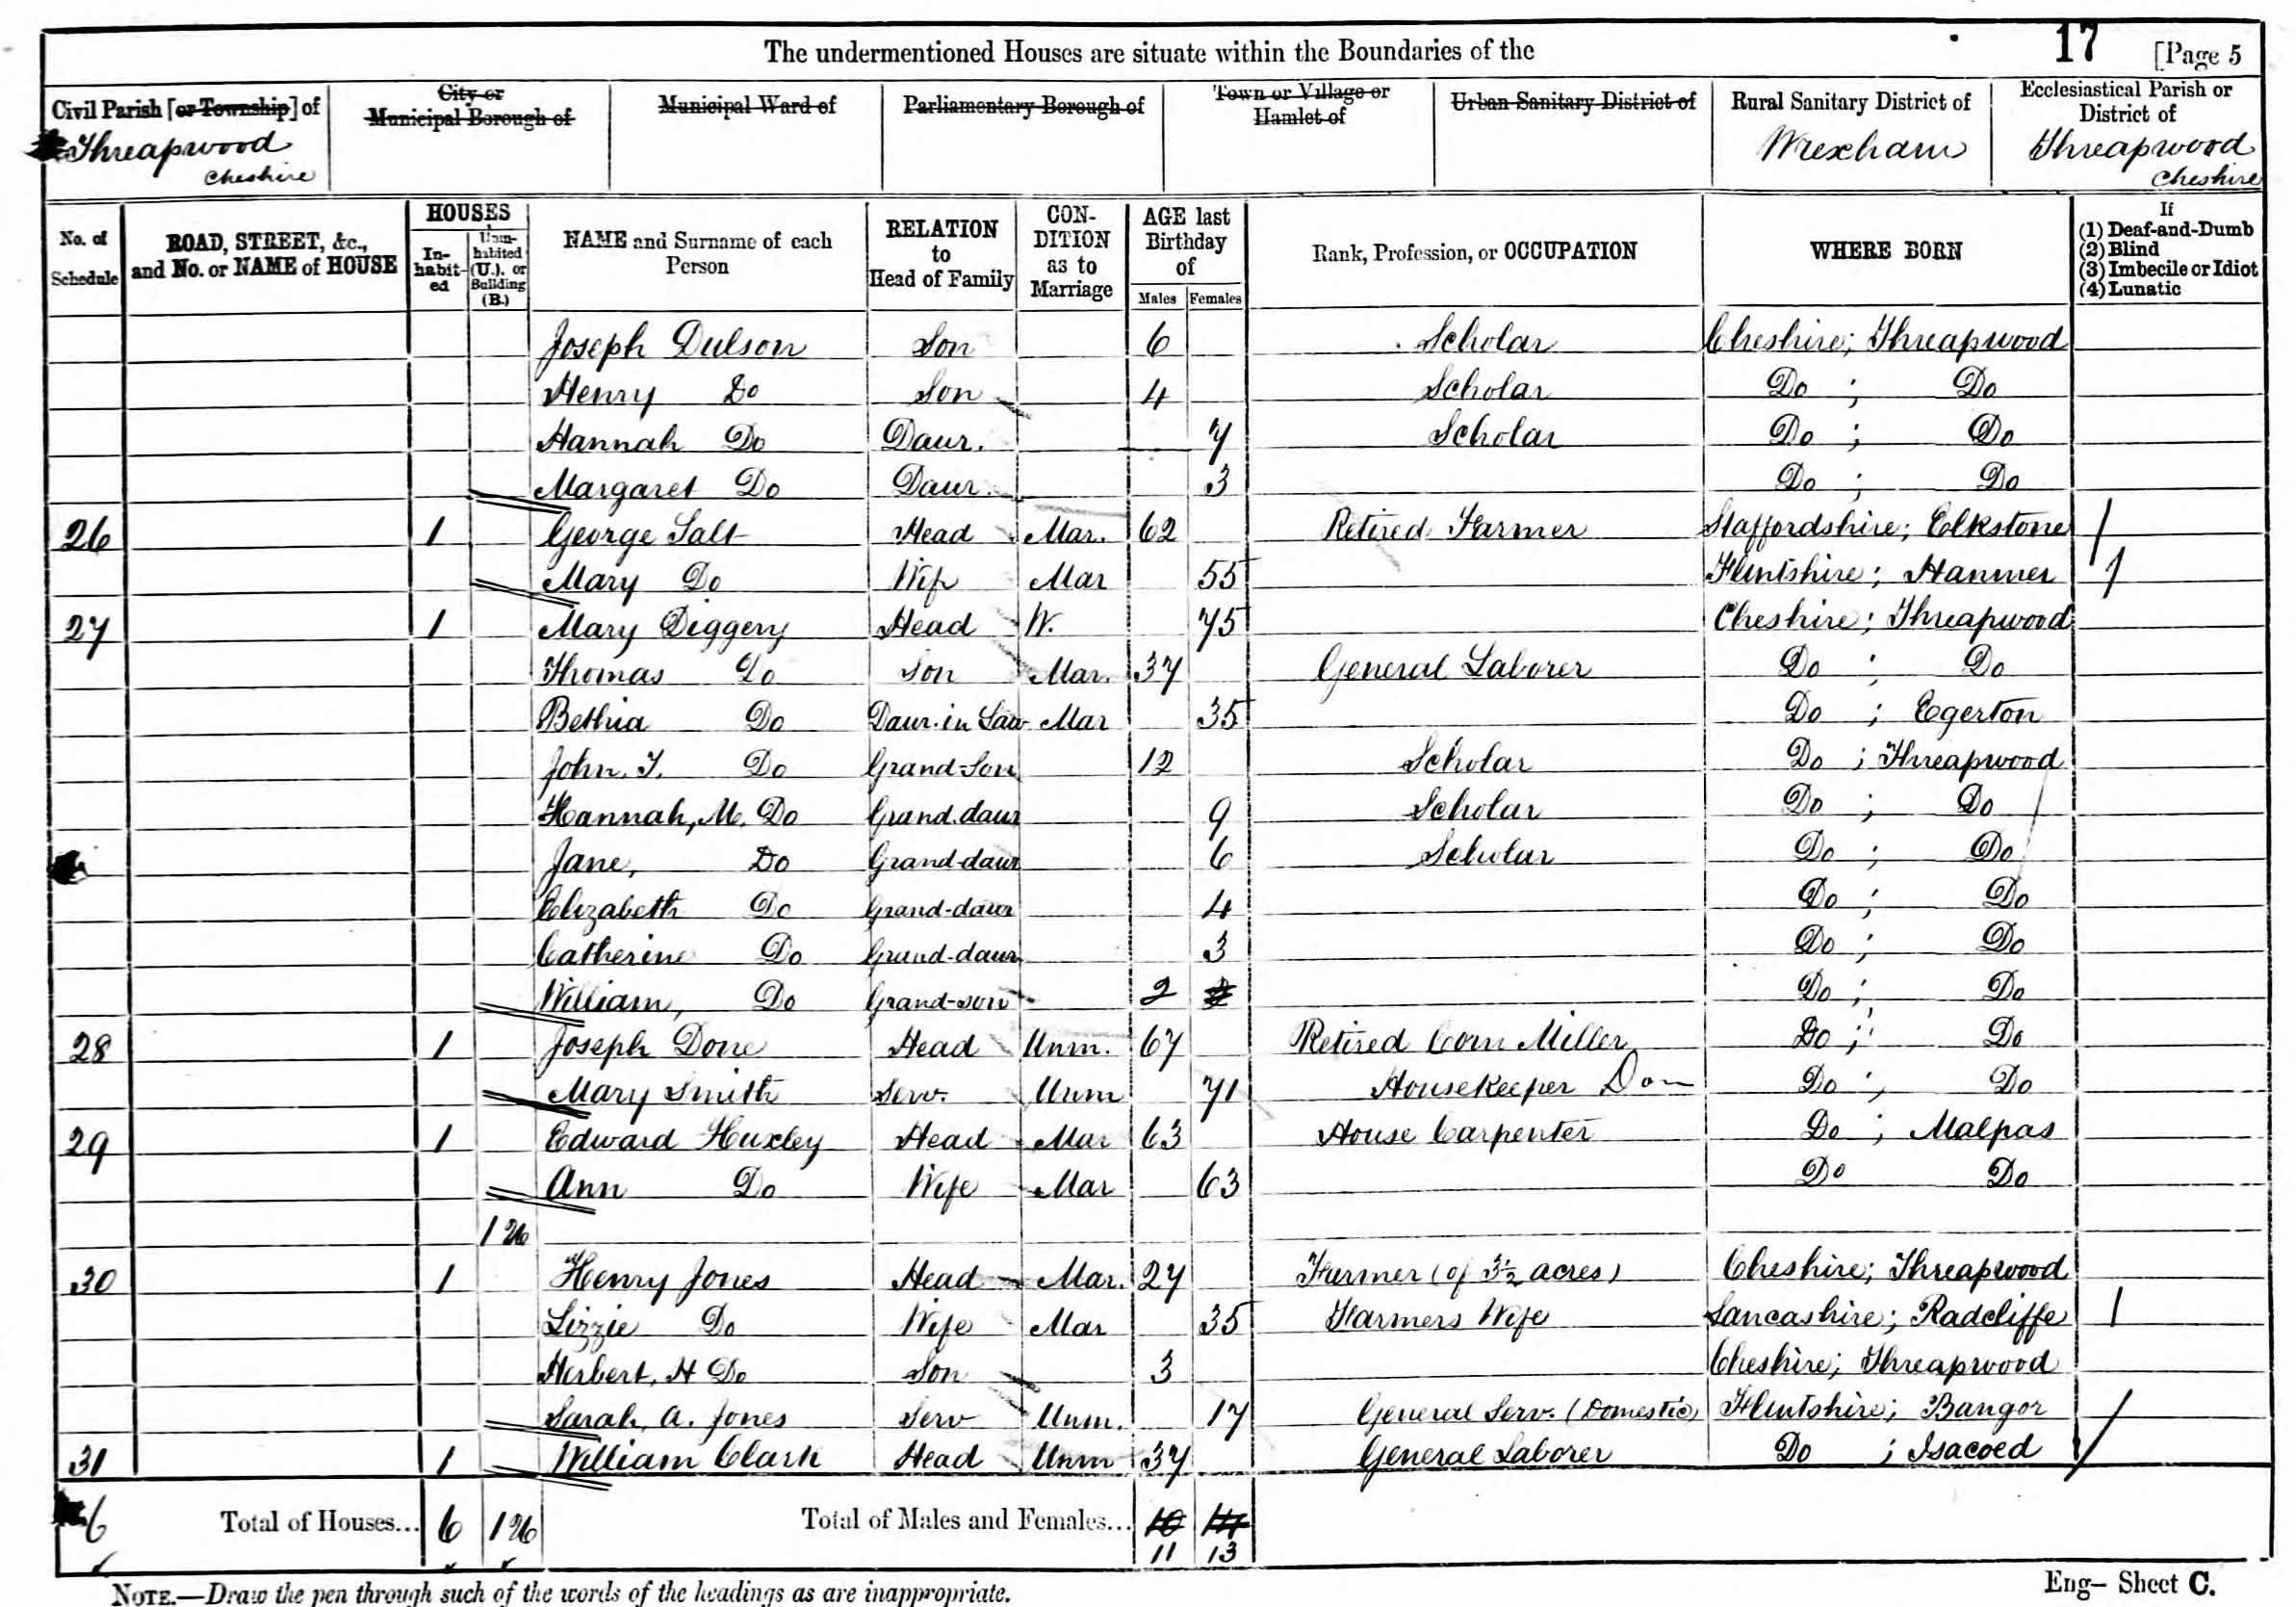 The undermentioned Houses are situate within the Boundaries of the
17 [Page 5
Civil Parish [or Township] of Threapwood Cheshire
City or Municipal Borough of
Municipal Ward of
Parliamentary Borough of
Town or Village or Hamlet of
Urban Sanitary District of
Rural Sanitary District of Wrexham
Ecclesiastical Parish or District of Threapwood Cheshire
No. of Schedule
ROAD, STREET, &c., and No. or NAME of HOUSE
HOUSES
In-habit-ed
Unin-habited (U.), or Building (B.)
NAME and Surname of each Person
RELATION to Head of Family
CON-DITION as to Marriage
AGE last Birthday of
Males Females
Rank, Profession, or OCCUPATION
WHERE BORN
If
(1) Deaf-and-Dumb
(2) Blind
(3) Imbecile or Idiot
(4) Lunatic
Joseph Dulson Son 6 Scholar Cheshire; Threapwood
Henry Do Son 4 Scholar Do ; Do
Hannah Do Daur. 7 Scholar Do ; Do
Margaret Do Daur. 3 Do ; Do
26 1 George Salt Head Mar. 62 Retired Farmer Staffordshire; Elkstone
Mary Do Wife Mar 55 Flintshire; Hanmer
27 1 Mary Diggery Head W. 75 Cheshire; Threapwood
Thomas Do Son Mar. 37 General Laborer Do ; Do
Bethia Do Daur. in Law Mar 35 Do ; Egerton
John. T. Do Grand-Son 12 Scholar Do ; Threapwood
Hannah, M. Do Grand. daur 9 Scholar Do ; Do
Jane, Do Grand-daur 6 Scholar Do ; Do
Elizabeth Do Grand-daur 4 Do ; Do
Catherine Do Grand-daur 3 Do ; Do
William, Do Grand-son 2 Do ; Do
28 1 Joseph Done Head Unm. 67 Retired Corn Miller Do ; Do
Mary Smith Serv. Unm 71 Housekeeper Dom Do ; Do
29 1 Edward Huxley Head Mar 63 House Carpenter Do ; Malpas
Ann Do Wife Mar 63 Do Do
1 U
30 1 Henry Jones Head Mar. 27 Farmer (of 3½ acres) Cheshire; Threapwood
Lizzie Do Wife Mar 35 Farmers Wife Lancashire; Radcliffe
Herbert, H Do Son 3 Cheshire; Threapwood
Sarah, A. Jones Serv Unm. 17 General Serv. (Domestic) Flintshire; Bangor
31 1 William Clark Head Unm 37 General Laborer Do ; Isacoed
6 Total of Houses... 6 1 U Total of Males and Females... 10 14
11 13
NOTE.—Draw the pen through such of the words of the headings as are inappropriate.
Eng– Sheet C.